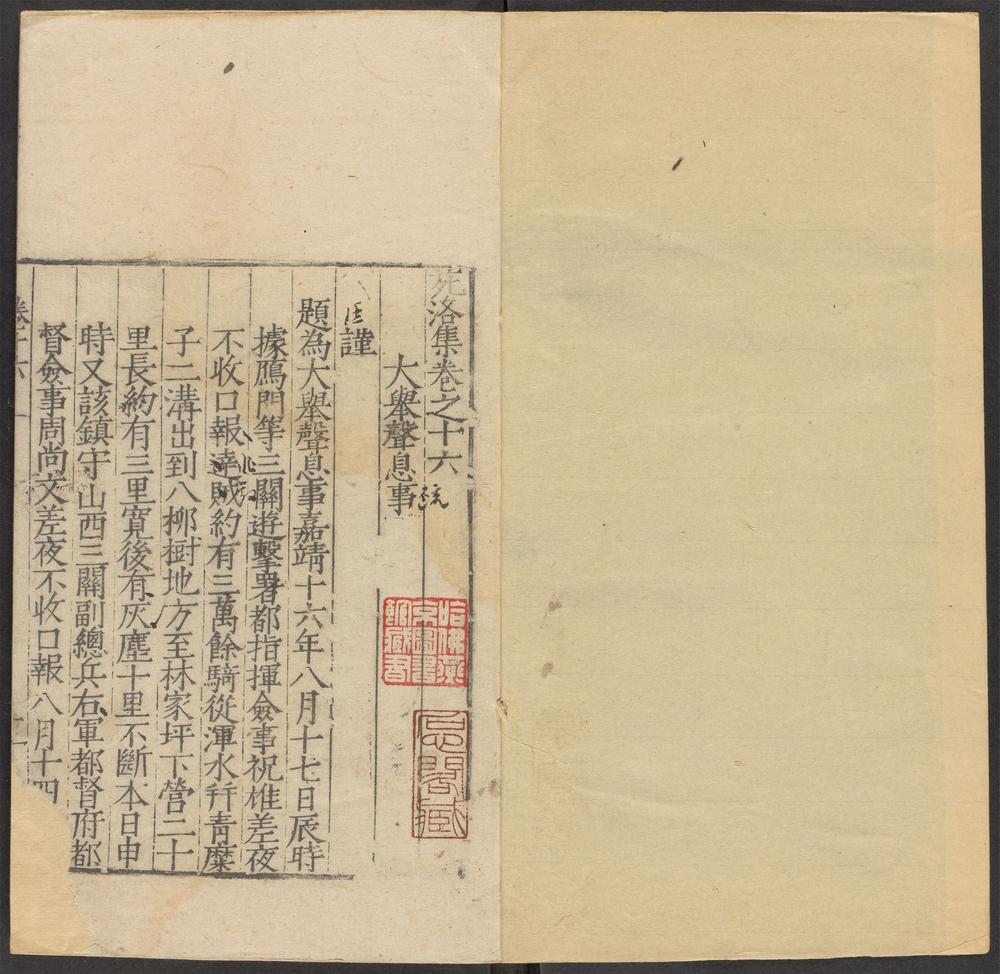 苑洛集卷之十六
大舉聲息事
臣謹
題為大舉聲息事嘉靖十六年八月十七日辰時
據鴈門等三關遊擊署都指揮僉事祝雄差夜
不收口報達賊約有三萬餘騎從渾水幵青糜
子二溝出到八柳樹地方至林家坪下營二十
里長約有三里寬後有灰塵十里不斷本日申
時又該鎮守山西三關副總兵右軍都督府都
督僉事周尚文差夜不收口報八月十四
卷十六
哈佛漢京圖書館藏書